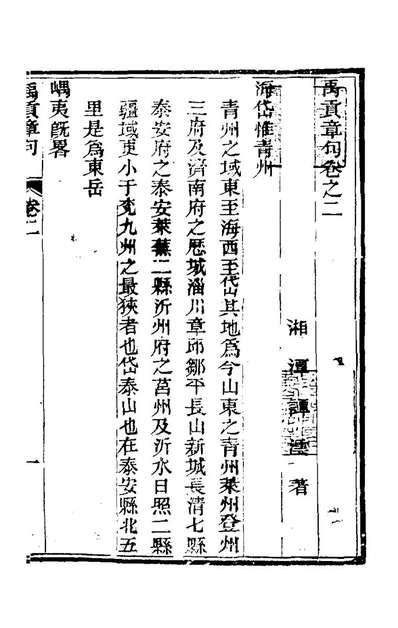 禹貢章句卷之二
湘潭譚澐著
海岱惟青州
青州之域東至海西至岱其地爲今山東之青州萊州登州
三府及濟南府之歷城淄川章邱鄒平長山新城長清七縣
泰安府之泰安萊蕪二縣沂州府之莒州及沂水日照二縣
疆域更小于兖九州之最狹者也岱泰山也在泰安縣北五
里是爲東岳
嵎夷旣畧
禹貢章句
卷二
一